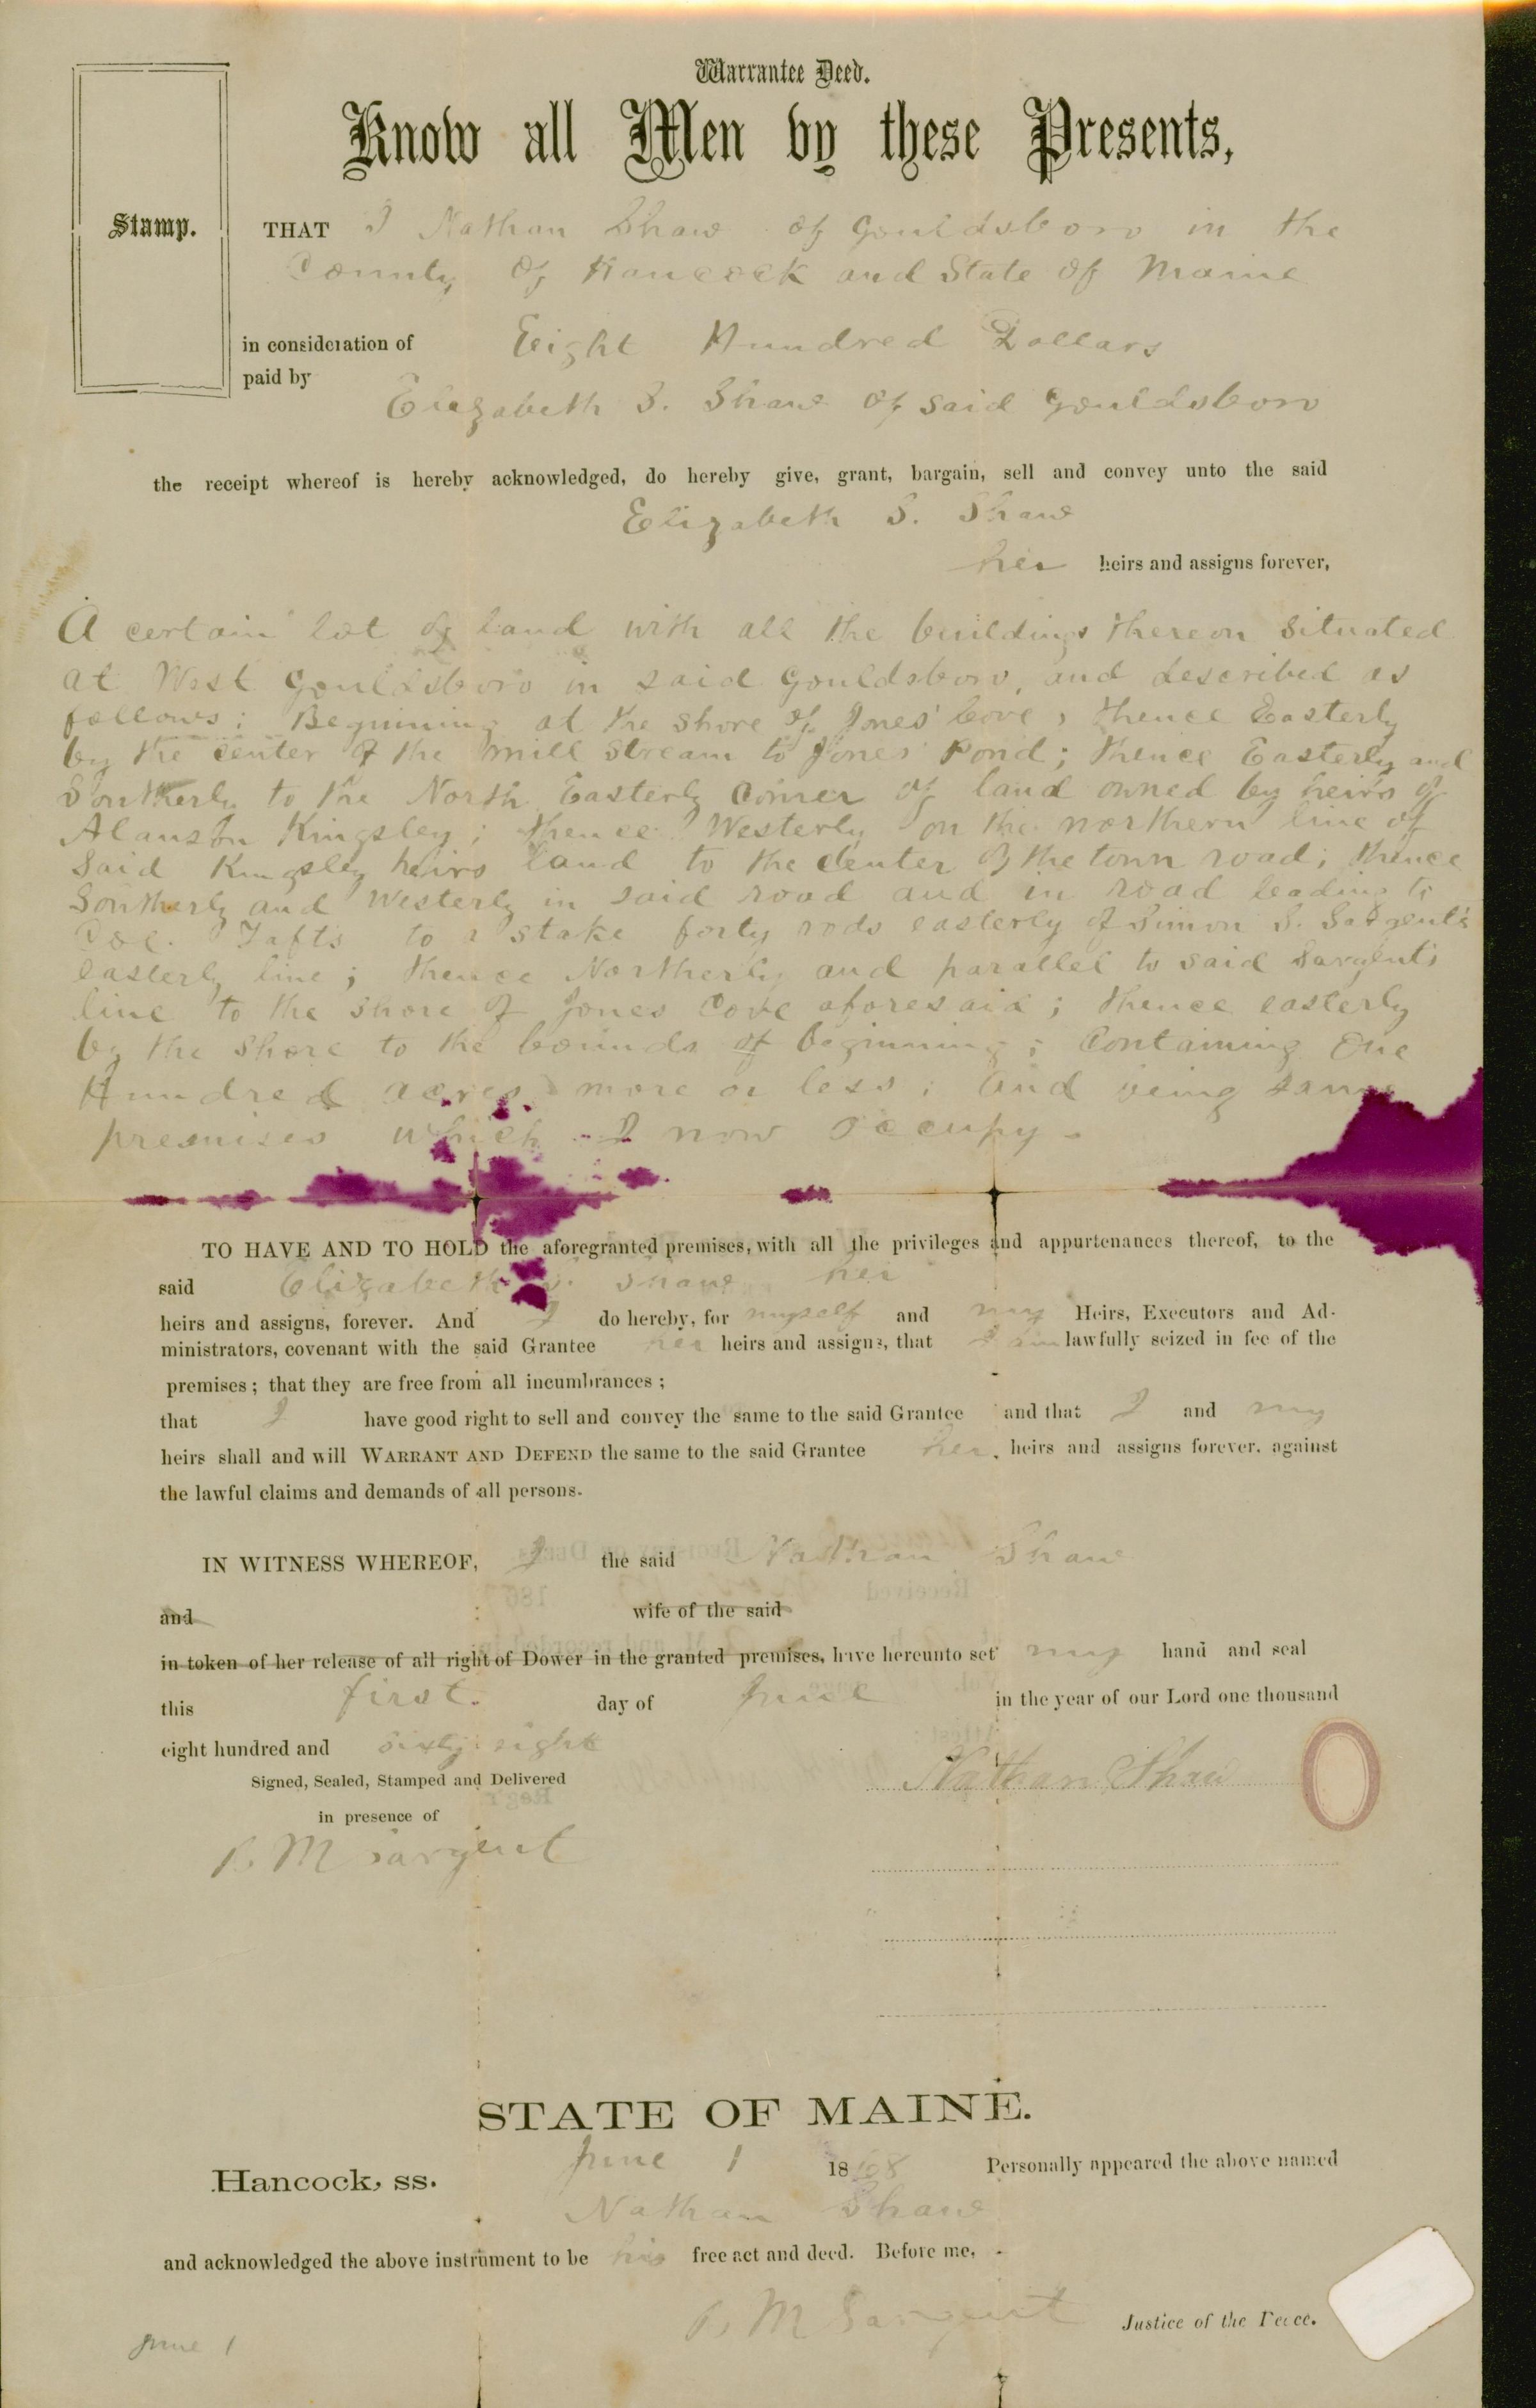 Warrantee Deed.
Know all Men by these Presents,
Stamp.
THAT I Nathan Shaw of Gouldsboro in the
County of Hancock and State of Maine
in consideration of Eight Hundred Dollars
paid by
Elizabeth S. Shaw of said Gouldsboro
the receipt whereof is hereby acknowledged, do hereby give, grant, bargain, sell and convey unto the said
Elizabeth S. Shaw
her heirs and assigns forever,
A certain lot of land with all the buildings thereon situated
at West Gouldsboro in said Gouldsboro, and described as
follows: Beginning at the shore of Jones' Cove, thence Easterly
by the center of the mill stream to Jones' Pond; thence Easterly and
Southerly to the North Easterly corner of land owned by heirs of
Alanson Kingsley; thence Westerly on the northern line of
said Kingsley heirs land to the center of the town road; thence
Southerly and Westerly in said road and in road leading to
Tafts to a stake forty rods easterly of Simon S. Sargent's
easterly line; thence Northerly and parallel to said Sargent's
line to the shore of Jones Cove aforesaid; thence easterly
by the shore to the bounds of beginning; containing One
Hundred acres more or less; and being same
premises which I now occupy.
TO HAVE AND TO HOLD the aforegranted premises, with all the privileges and appurtenances thereof, to the
said Elizabeth S. Shaw her
heirs and assigns, forever. And I do hereby, for myself and my Heirs, Executors and Ad-
ministrators, covenant with the said Grantee her heirs and assigns, that I am lawfully seized in fee of the
premises; that they are free from all incumbrances;
that I have good right to sell and convey the same to the said Grantee and that I and my
heirs shall and will WARRANT AND DEFEND the same to the said Grantee her heirs and assigns forever. against
the lawful claims and demands of all persons.
IN WITNESS WHEREOF, I the said Nathan Shaw
and wife of the said
in token of her release of all right of Dower in the granted premises, have hereunto set my hand and seal
this first. day of June in the year of our Lord one thousand
eight hundred and sixty eight
Signed, Sealed, Stamped and Delivered
in presence of
Nathan Shaw
M Sargent
STATE OF MAINE.
Hancock, ss. June 1 1868 Personally appeared the above named
Nathan Shaw
and acknowledged the above instrument to be his free act and deed. Before me,
M Sargent Justice of the Peace.
June 1